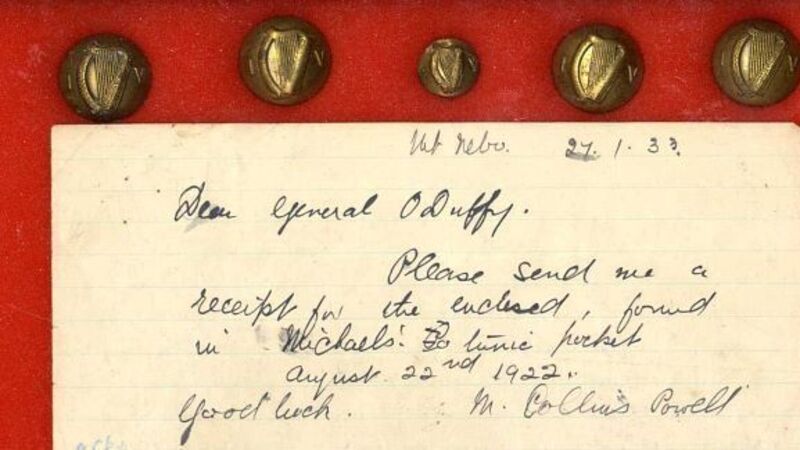 I V
I V
I V
I V
I V
Mt Nebo. 27.1.33.
Dear General O Duffy.
Please send me a
receipt for the enclosed, found
in Michaels' tunic pocket
August 22nd 1922.
Good luck. M. Collins Powell